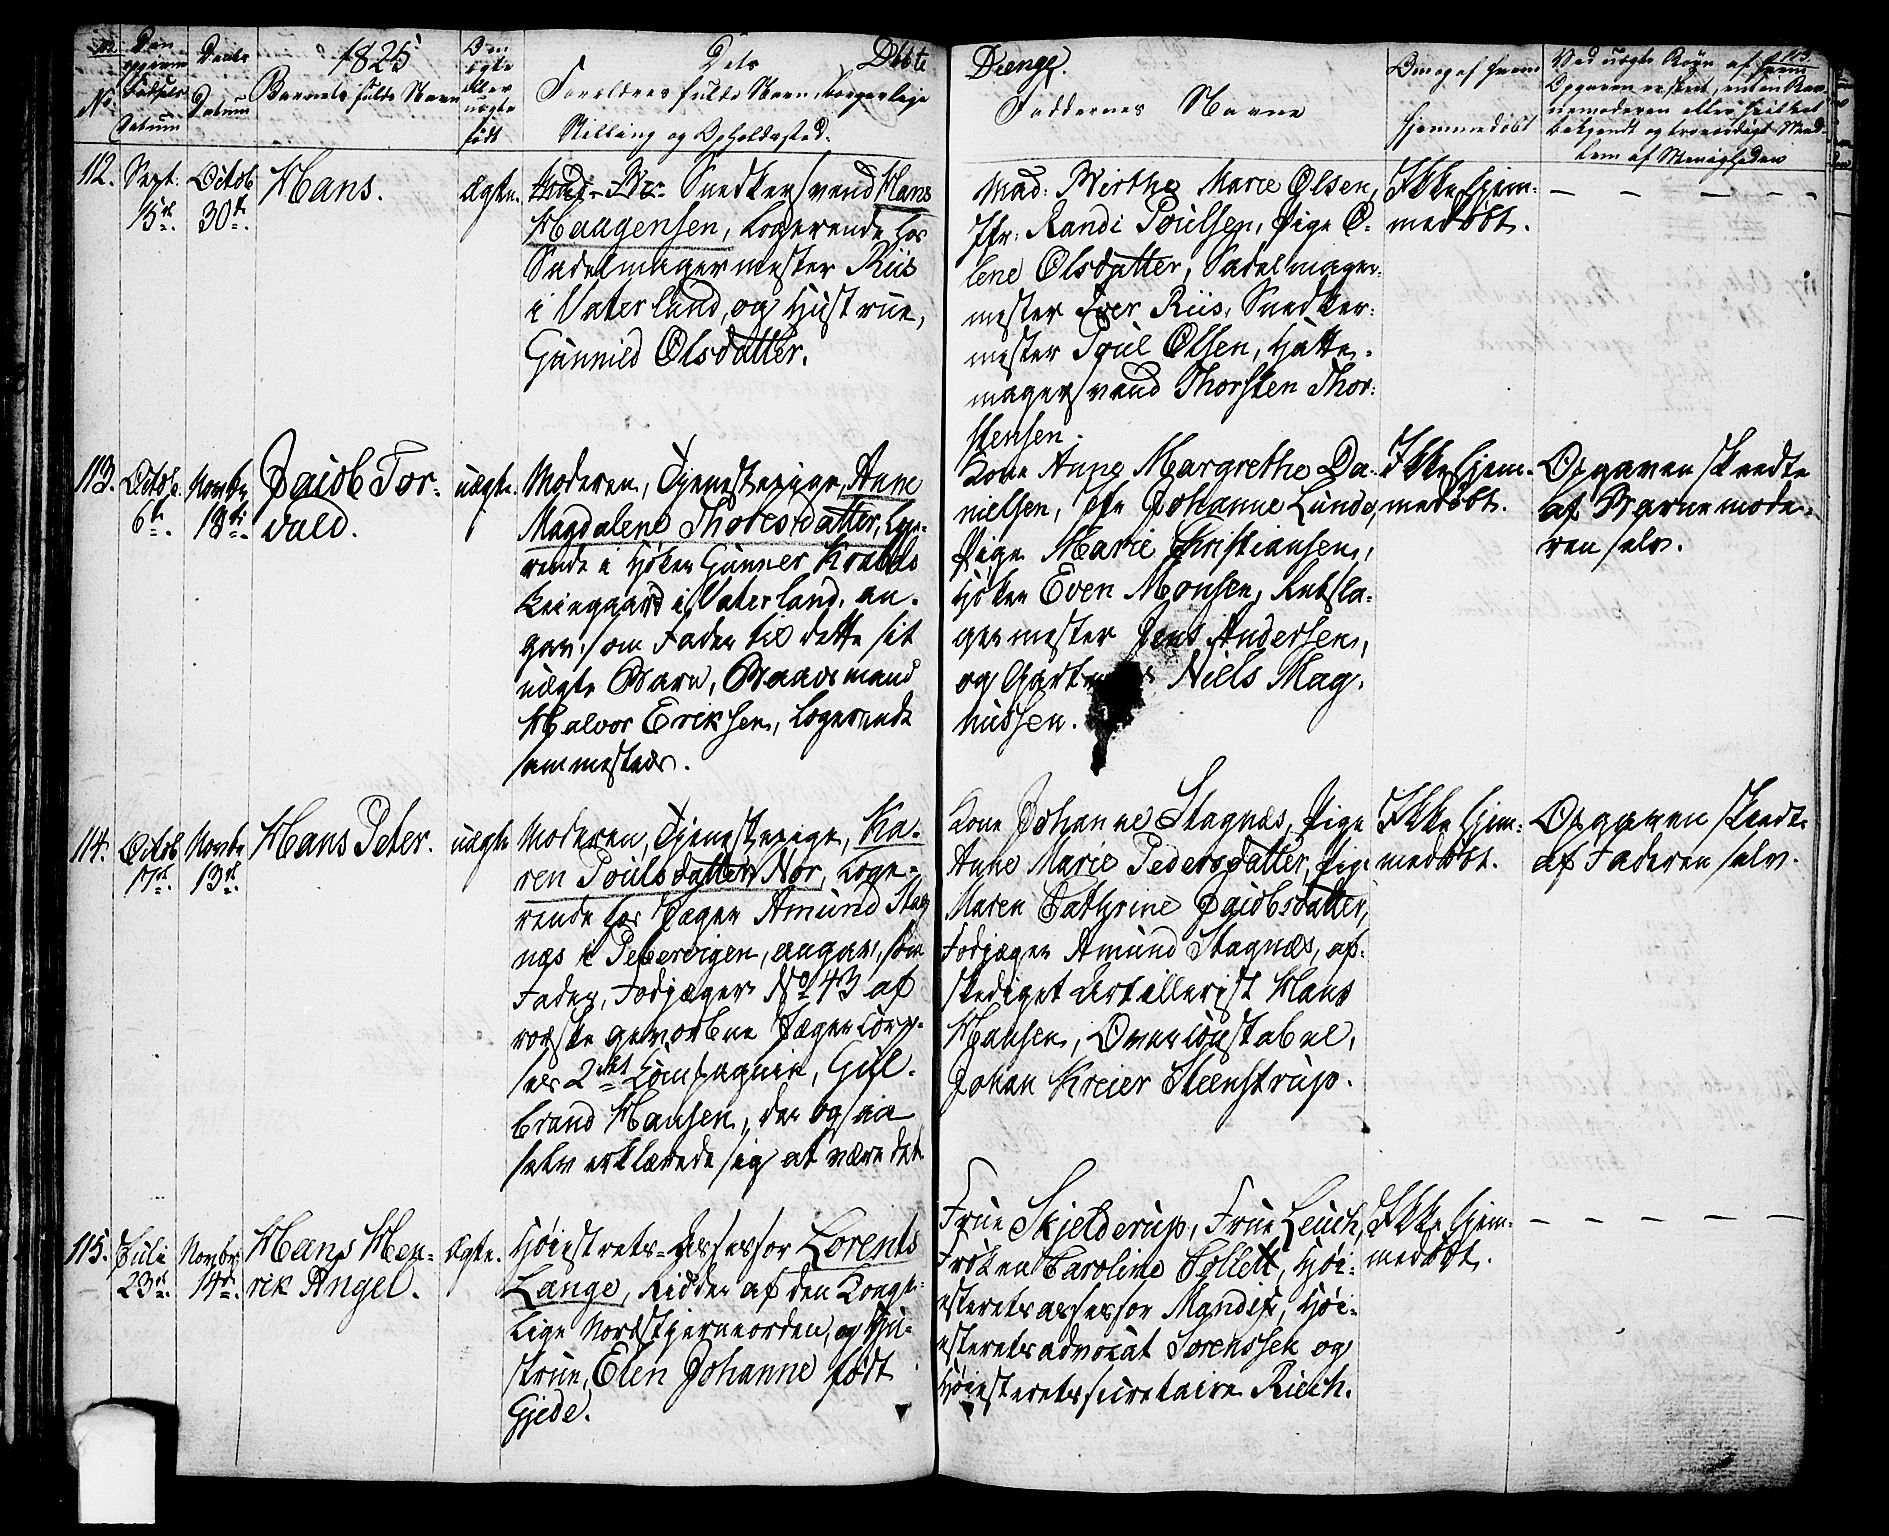 No.
Den
Fødsels
Datum
Daabs
Datum
1825
Barnets fulde Navn
Om
ægte
eller
uægte
født
Dets
Forældres fulde Navn, borgerlige
Stilling og Opholdssted.
Døbte
Drenge.
Faddernes Navne
Om og af hvem
hjemmedøbt
Ved uægte Børn af hvem
Opgaven er skeet, enten Bar-
nemoderen eller hvilket
bekjendt og troværdigt Med-
lem af Menigheden
112. Sept. 15de. Octob 30te. Hans. Ægte.
Snedkersvend Hans
Haagensen, Logerende hos
Sadelmagermester Riis
i Vaterland, og Hustrue,
Gunnild Olsdatter.
Mad: Birthe Marie Olsen,
Jfr: Randi Poulsen, Pige O-
lene Olsdatter, Sadelmager-
mester Iver Riis, Snedker-
mester Poul Olsen, Hatte-
magersvend Thorsten Thor-
stensen.
Ikke hjem-
medøbt.
113. Octob. 6te. Novbr 13de. Jacob Tor-
vald.
uægte.
Moderen, Tjenestepige, Anne
Magdalene Thoresdatter, Loge-
rende i Høker Gunner Krabbs
Leiegaard i Vaterland, an-
gav som Fader til dette sit
uægte Barn, Baadsmand
Halvor Eriksen, Logerende
sammesteds.
Kone Anne Margrethe Da-
nielsen, Jfr Johanne Lunde,
Pige Marie Christiansen,
Høker Even Monsen, Rebsla-
germester Jens Andersen,
og Gartner Niels Mag-
nussen.
Ikke hjem-
medøbt.
Opgaven skeedte
af Barnemode-
ren selv.
114. Octob 17de. Novbr 13de. Hans Peter. uægte
Moderen, Tjenestepige, Ka-
ren Poulsdatter Nor, Loge-
rende hos Jæger Amund Stag
næs i Pebervigen, angav, som
Fader, Fodjæger No 43 af
norske gevorbne Jægercorp-
ses 2det Compagnie, Gul-
brand Hansen, der og saa
selv erklærede sig at være det.
Kone Johanne Stagnæs, Pige
Anne Marie Pedersdatter, Pige
Maren Cathrine Jacobsdatter,
Fodjæger Amund Stagnæs, af-
skediget Artillerist Hans
Hansen, Overconstabel,
Johan Kreier Steenstrup.
Ikke hjem-
medøbt.
Opgaven skeedte
af Faderen selv.
115. Juli 23de. Novbr 14de. Hans Hen-
rik Angel.
Ægte.
Høiestrets-Assessor Lorents
Lange, Ridder af den Konge-
lige Nordstjerneorden, og Hu-
strue, Elen Johanne født
Gjede.
Frue Skjelderup, Frue Leuch,
Frøken Caroline Collett, Høi-
esteretsassessor Mandix, Høi-
esteretsadvocat Sørenssen og
Høiesteretssecretaire Riech.
Ikke hjem-
medøbt.